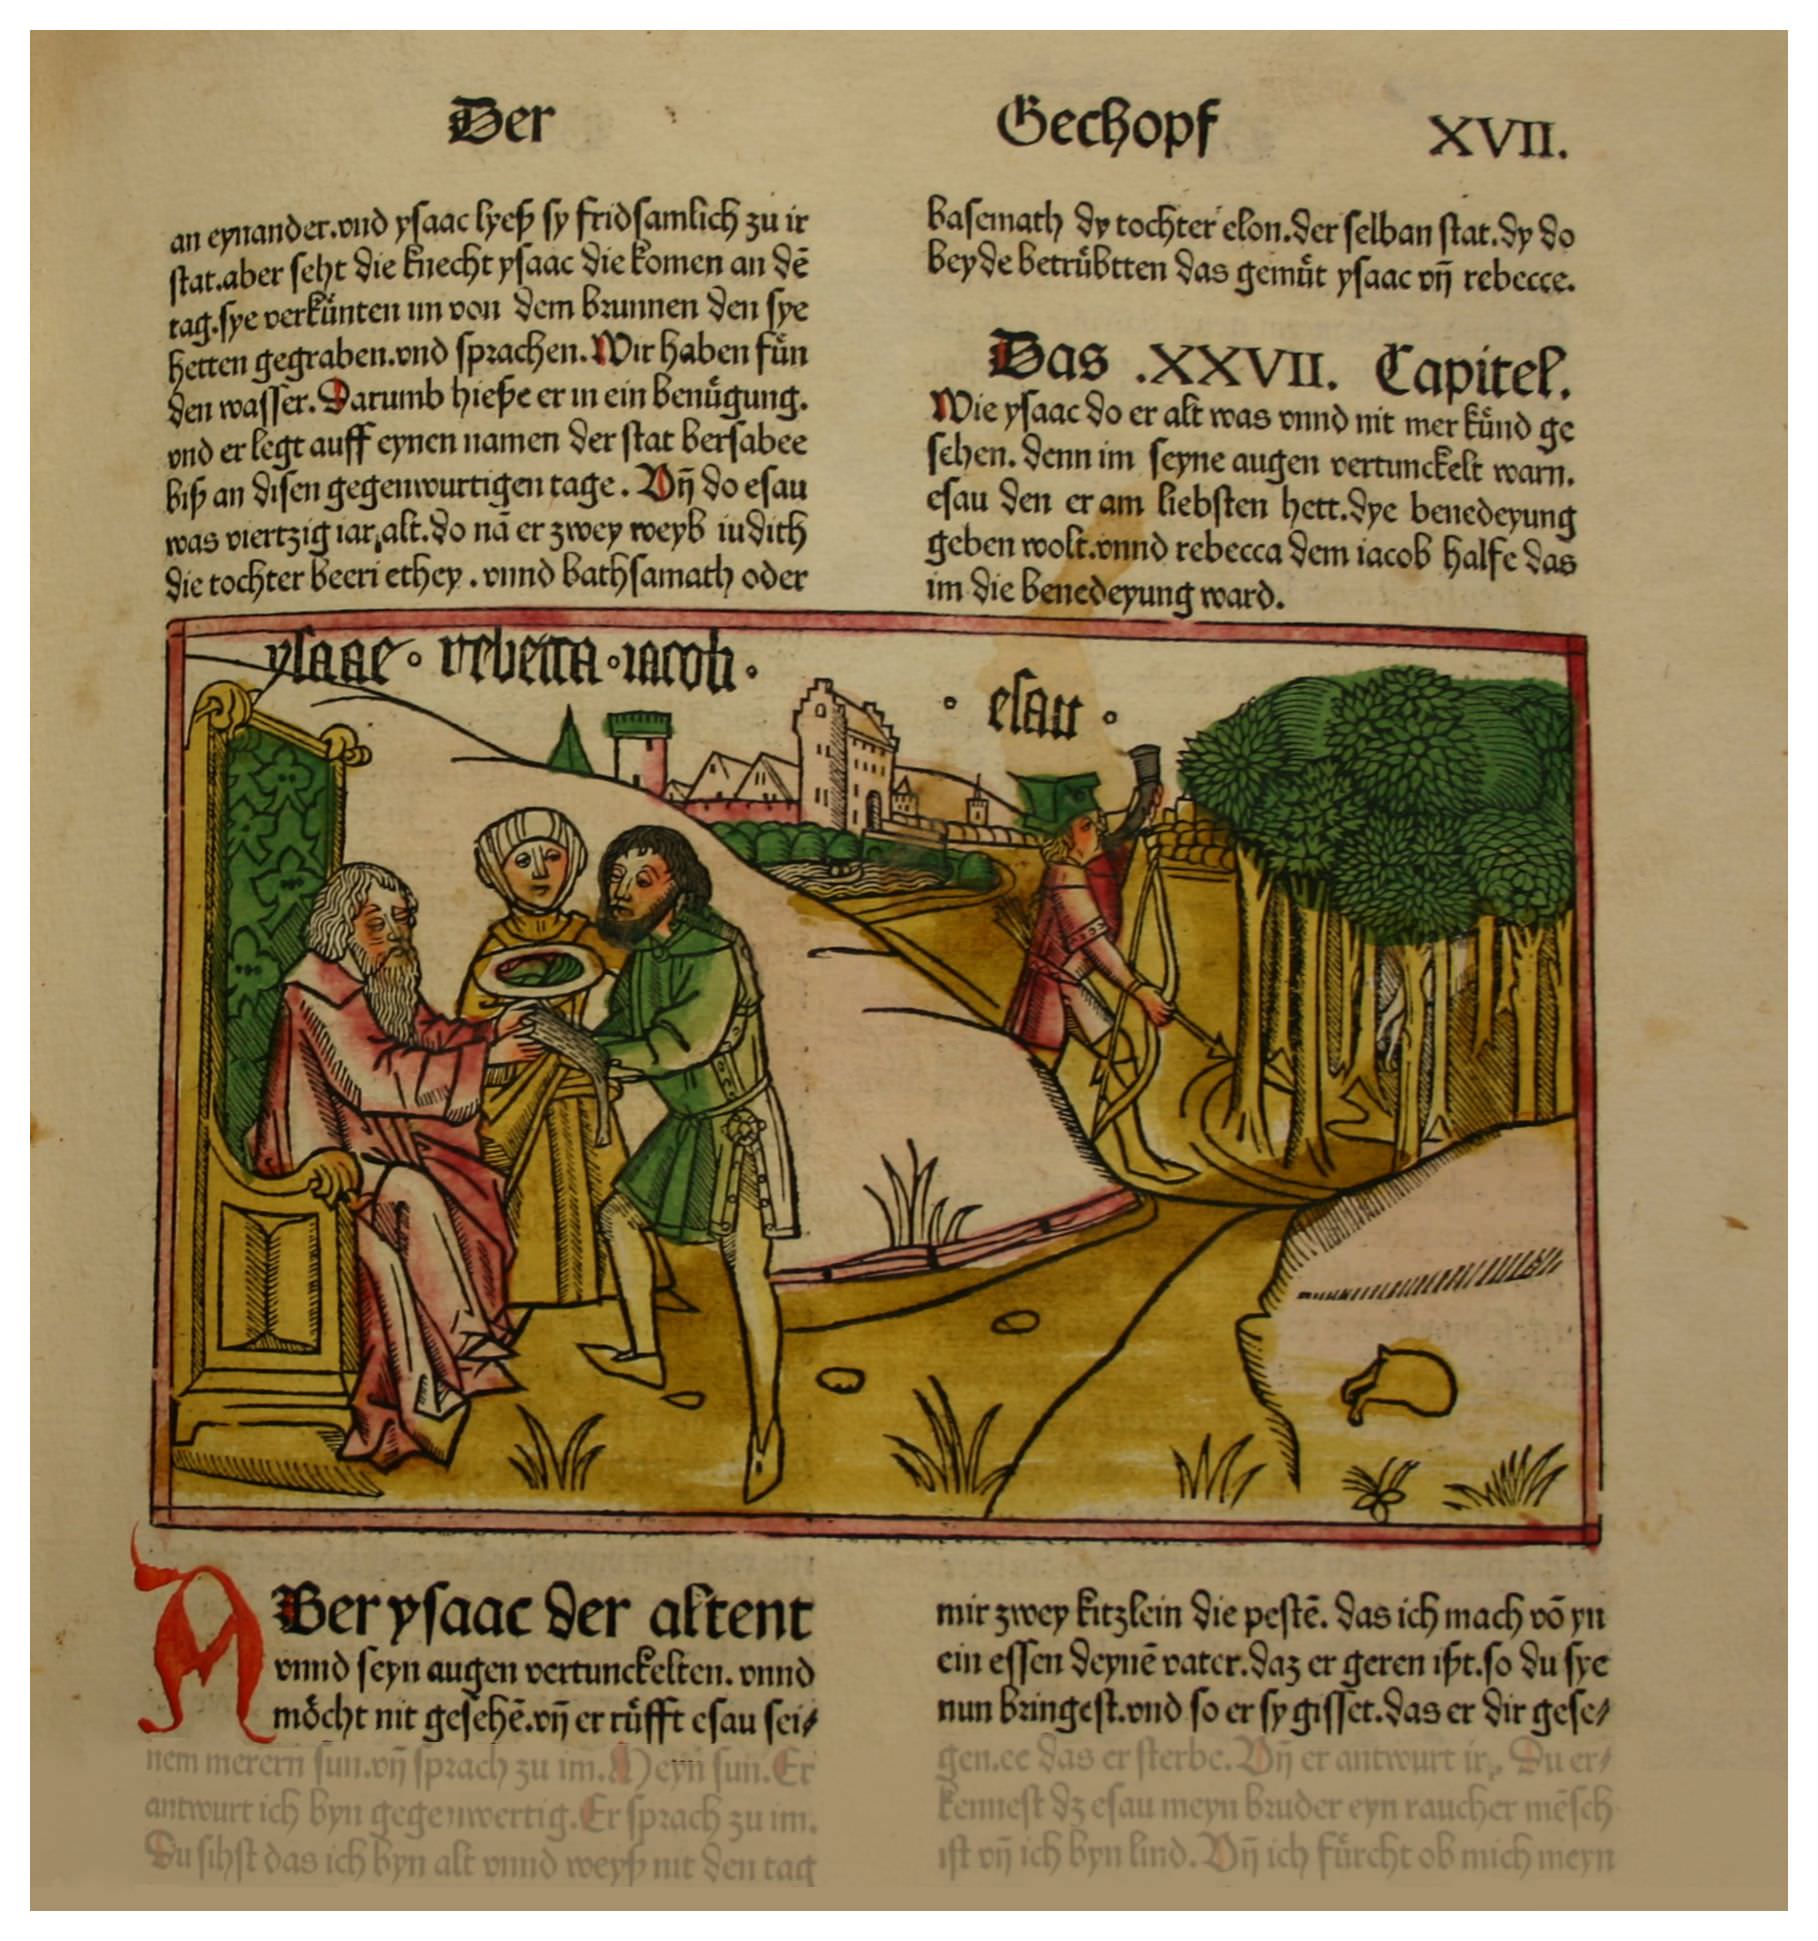 Der Gechopf XVII.
an eynander.vnd ysaac lyeß sy fridsamlich zu ir
stat.aber seht die knecht ysaac die komen an dē
tag.sye verkůnten im von dem brunnen den sye
hetten gegraben.vnd sprachen.Wir haben fůn
den wasser.Darumb hieße er in ein benůgung.
vnd er legt auff eynen namen der stat bersabee
biß an disen gegenwurtigen tage. Vñ do esau
was viertzig iar alt.do nā er zwey weyb iudith
die tochter beeri ethey. vnnd bathsamath oder
basemath dy tochter elon.der selban stat.dy do
beyde betrůbtten das gemůt ysaac vñ rebecce.
Das .XXVII. Capitel.
Wie ysaac do er alt was vnnd nit mer kůnd ge
sehen. denn im seyne augen vertunckelt warn.
esau den er am liebsten hett.dye benedeyung
geben wolt.vnnd rebecca dem iacob halfe das
im die benedeyung ward.
ysaac ∘ rebecca ∘ iacob ∘
∘ esau ∘
ABer ysaac der altent
vnnd seyn augen vertunckelten. vnnd
mȯcht nit gesehē.vñ er růfft esau sei⸗
nem merern sun.vñ sprach zu im.Meyn sun.Er
antwurt ich byn gegenwertig.Er sprach zu im.
Du sihst das ich byn alt vnnd weyß nit den tag
mir zwey kitzlein die pestē. das ich mach vō yn
ein essen deynē vater.daz er geren ißt.so du sye
nun bringest.vnd so er sy gisset.das er dir gese⸗
gen.ee das er sterbe.Vñ er antwurt ir. Du er⸗
kennest dz esau meyn bruder eyn raucher mēsch
ist vñ ich byn lind. Vñ ich fůrcht ob mich meyn